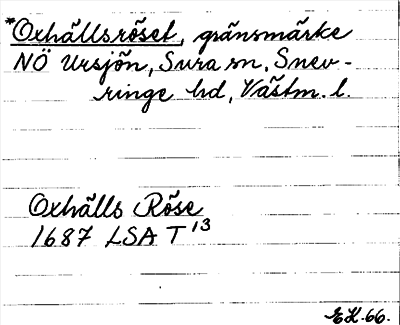 *Oxhällsröset, gränsmärke
NÖ Ursjön, Sura sn, Snev-
ringe hd, Västm. l.
Oxhälls Röse
1687 LSA T 13
EK.66.